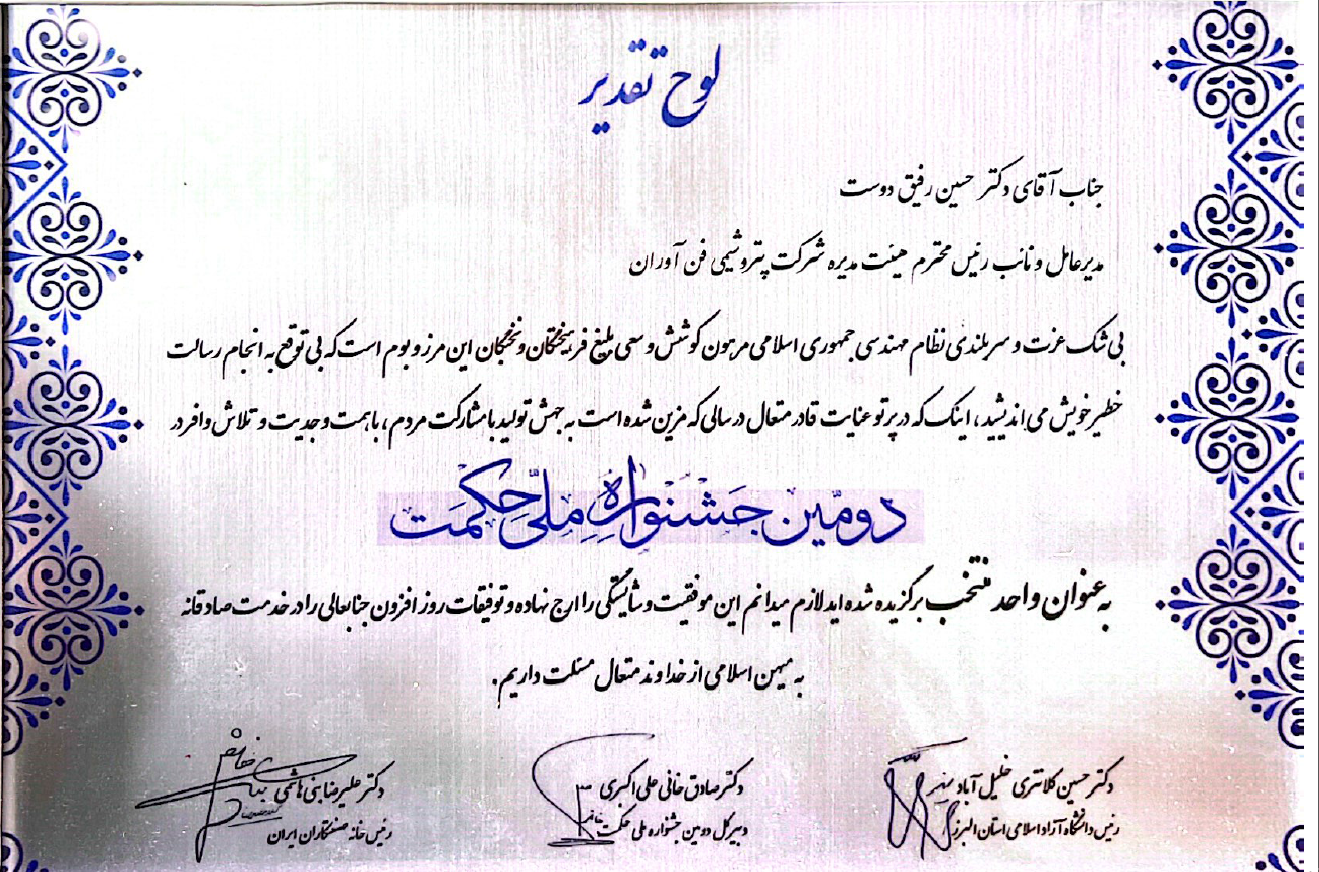 لوح تقدیر
جناب آقای دکتر حسین رفیق دوست
مدیرعامل و نائب رئیس محترم هیئت مدیره شرکت پتروشیمی فن آوران
بی شک عزت و سربلندی نظام مهندسی جمهوری اسلامی مرهون کوشش و سعی بلیغ فرهیختگان و نخبگان این مرز و بوم است که بی توقع به انجام رسالت
خطیر خویش می اندیشید، اینک که در پرتو عنایت قادر متعال در سالی که مزین شده است به جهش تولید با مشارکت مردم، با همت و جدیت و تلاش وافر در
دومین جشنواره ملی حکمت
به عنوان واحد منتخب برگزیده شده اید لازم میدانم این موفقیت و شایستگی را ارج نهاده و توفیقات روز افزون جنابعالی را در خدمت صادقانه
به میهن اسلامی از خداوند متعال مسئلت داریم.
دکتر حسین کلانتری خلیل آباد
رئیس دانشگاه آزاد اسلامی استان البرز
دکتر صادق خانی علی اکبری
دبیر کل دومین جشنواره ملی حکمت
دکتر علیرضا بنی هاشمی
رئیس خانه صنعتکاران ایران